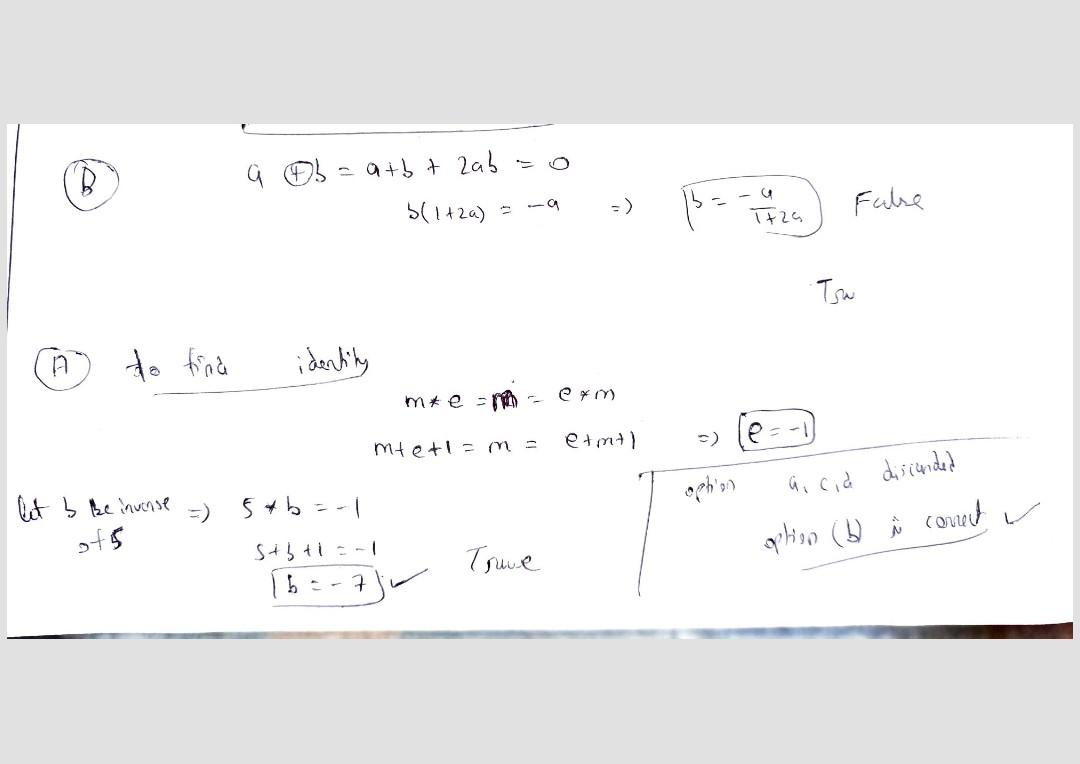 B a ⊕ b = a+b + 2ab = 0
b(1+2a) = -a => b = -a/1+2a False
A to find identity
m*e = m = e*m
m+e+1 = m = e+m+1 => e = -1
let b be inverse of 5 => 5*b = -1
5+b+1 = -1
b = -7 ✓ True
option a, c, d discarded
option (b) is correct ✓